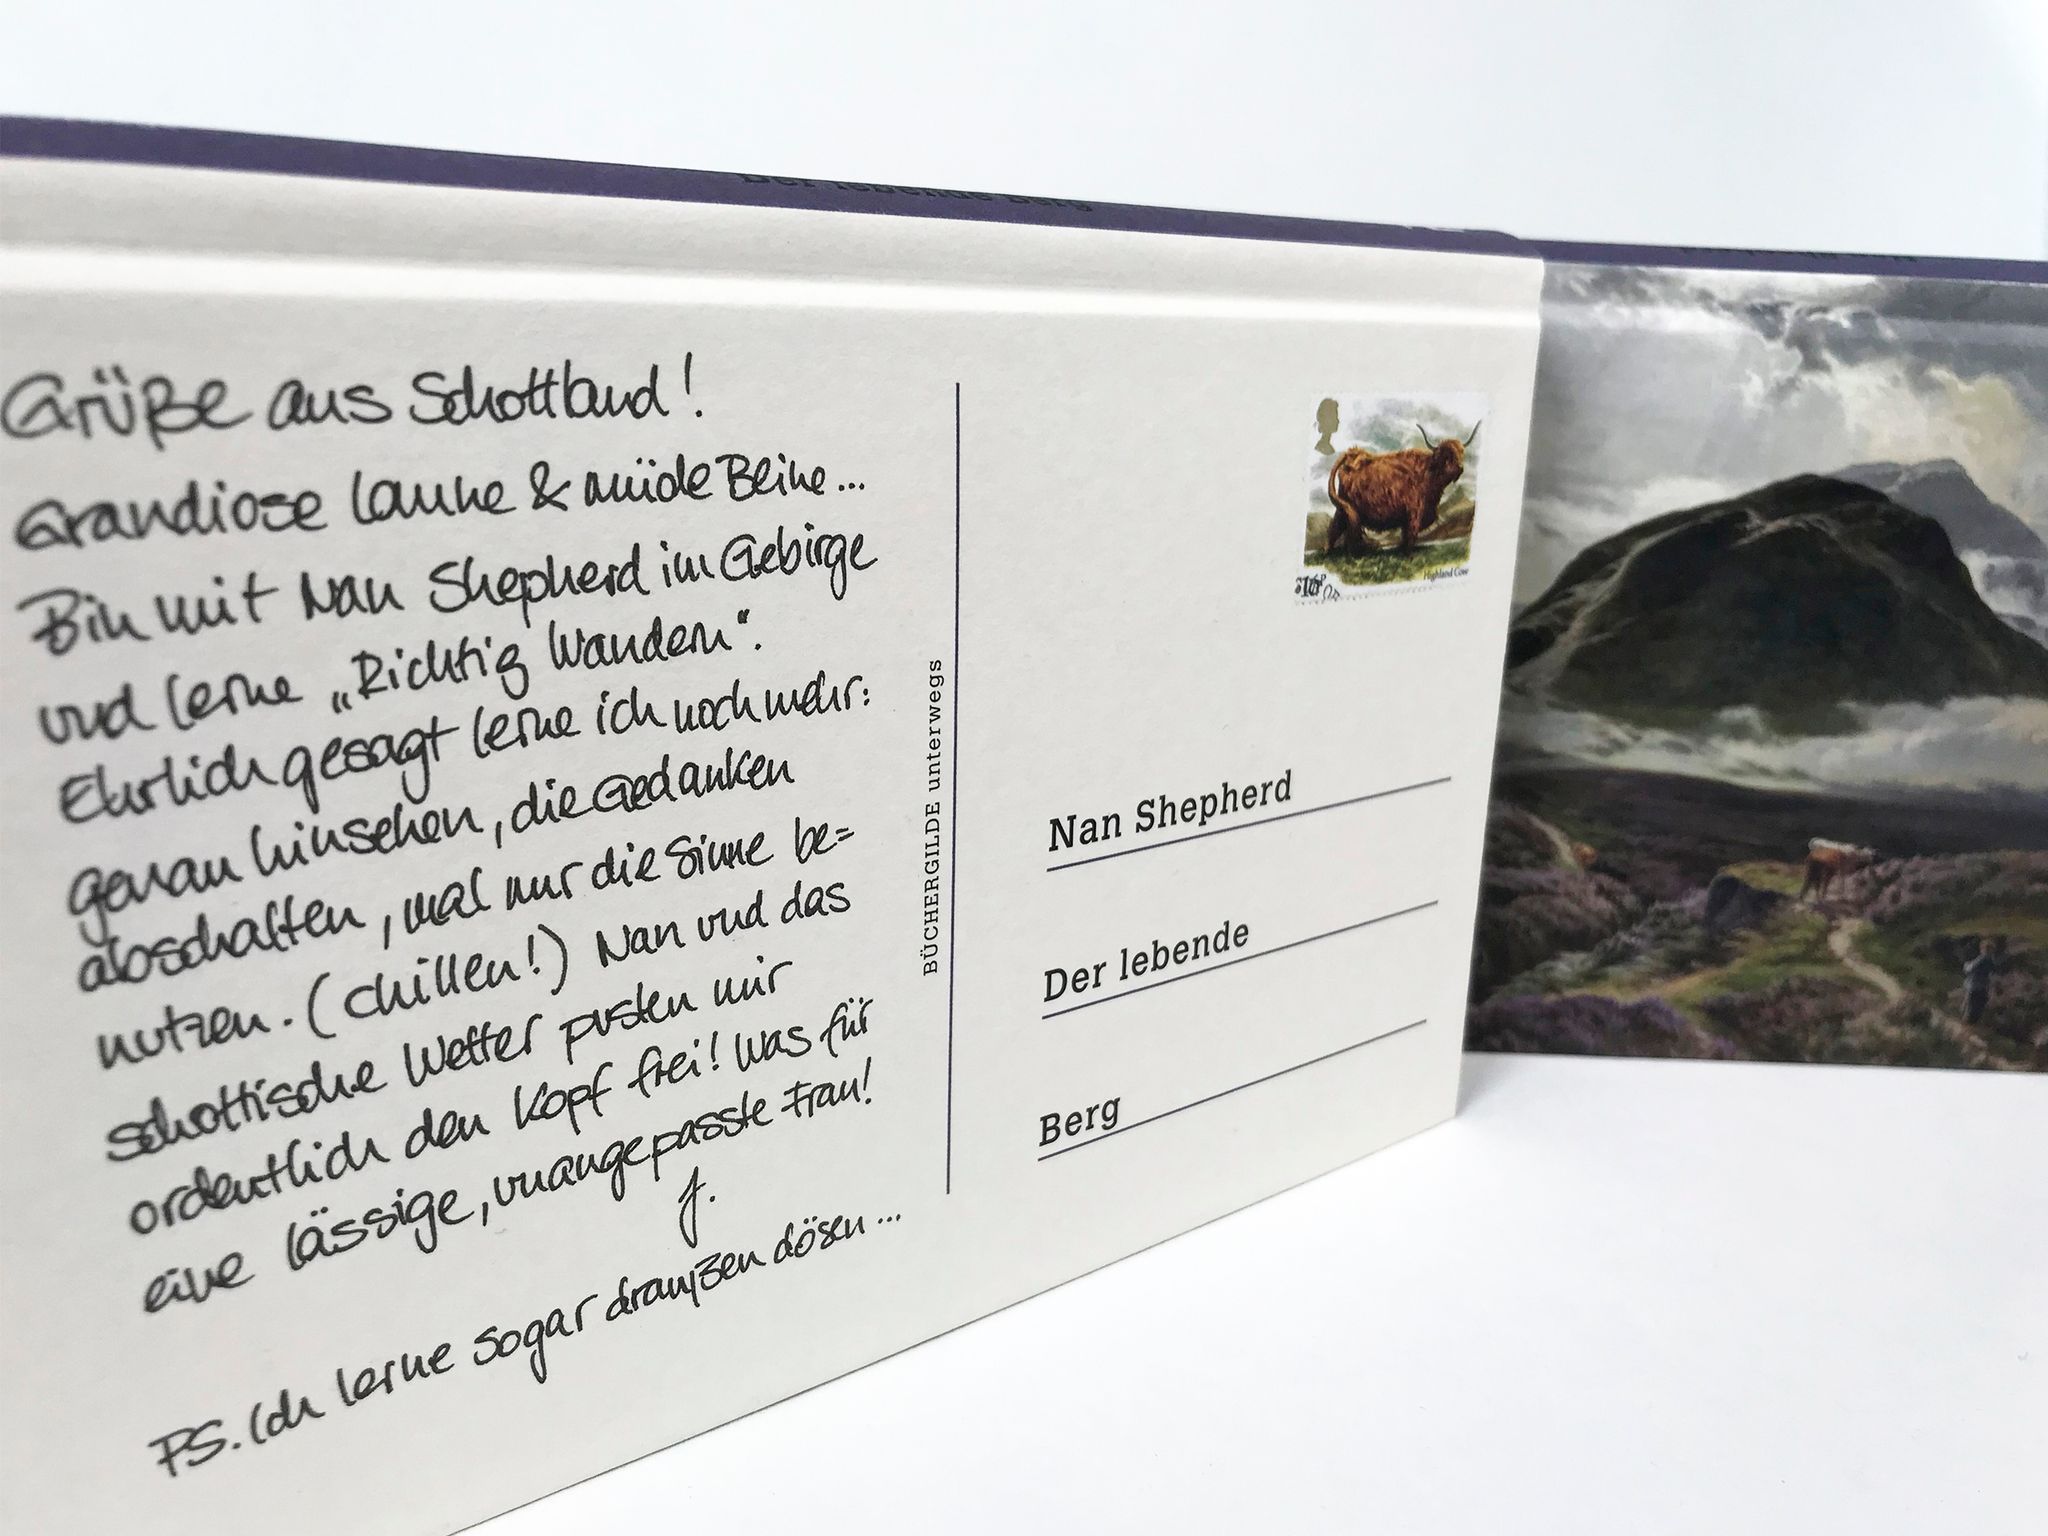 Der lebende Berg
Grüße aus Schottland!
Grandiose Laune & müde Beine...
Bin mit Nan Shepherd im Gebirge
und lerne „Richtig Wandern“.
Ehrlich gesagt lerne ich noch mehr:
genau hinsehen, die Gedanken
abschalten, mal nur die Sinne be=
nutzen. (chillen!) Nan und das
schottische Wetter pusten mir
ordentlich den Kopf frei! Was für
eine lässige, unangepasste Frau!
J.
PS. Ich lerne sogar draußen dösen...
BÜCHERGILDE unterwegs
Highland Cow
Nan Shepherd
Der lebende
Berg